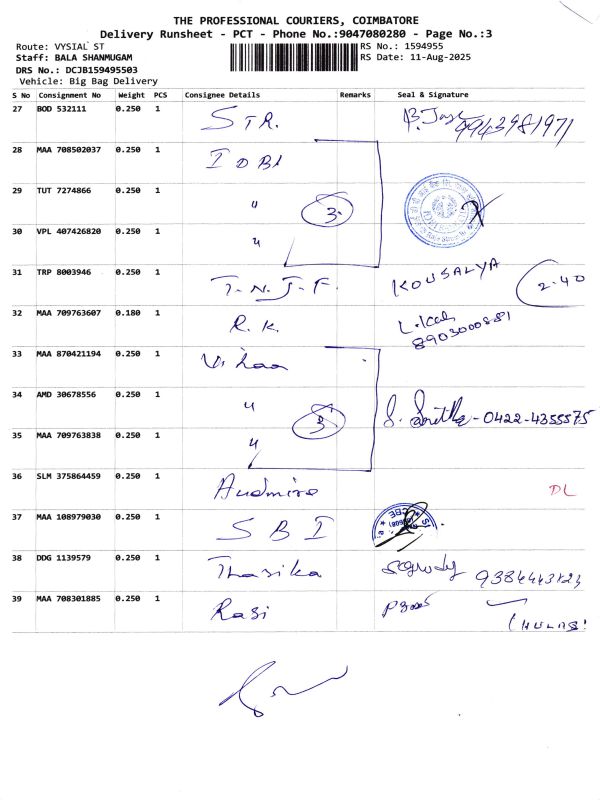 THE PROFESSIONAL COURIERS, COIMBATORE
Delivery Runsheet - PCT - Phone No.:9047080280 - Page No.:3
Route: VYSIAL ST RS No.: 1594955
Staff: BALA SHANMUGAM RS Date: 11-Aug-2025
DRS No.: DCJB159495503
Vehicle: Big Bag Delivery
S No Consignment No Weight PCS Consignee Details Remarks Seal & Signature
27 BOD 532111 0.250 1 STR. 9943981971
28 MAA 708502037 0.250 1 IDBI
29 TUT 7274866 0.250 1 " 3
30 VPL 407426820 0.250 1 "
31 TRP 8003946 0.250 1 T.N.J.F. KOUSALYA 2.40
32 MAA 709763607 0.180 1 R.K. 8903000881
33 MAA 870421194 0.250 1
34 AMD 30678556 0.250 1 " 3 0422-4355575
35 MAA 709763838 0.250 1 "
36 SLM 375864459 0.250 1 DL
37 MAA 108979030 0.250 1 SBI
38 DDG 1139579 0.250 1 Thasika
39 MAA 708301885 0.250 1 Rasi